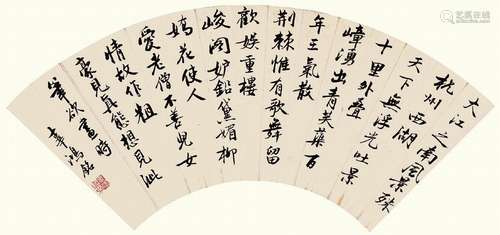 大江之南風景殊
杭州西湖
天下無浮光吐景
十里外疊
嶂湧出青芙蕖百
年王氣散
荆棘惟有歌舞留
歡娛重樓
峻閣妒鉛黛媚柳
嬌花使人
愛老僧不善兒女
情故作粗
豪見真態想見此
筆欲畫時
辜鴻銘